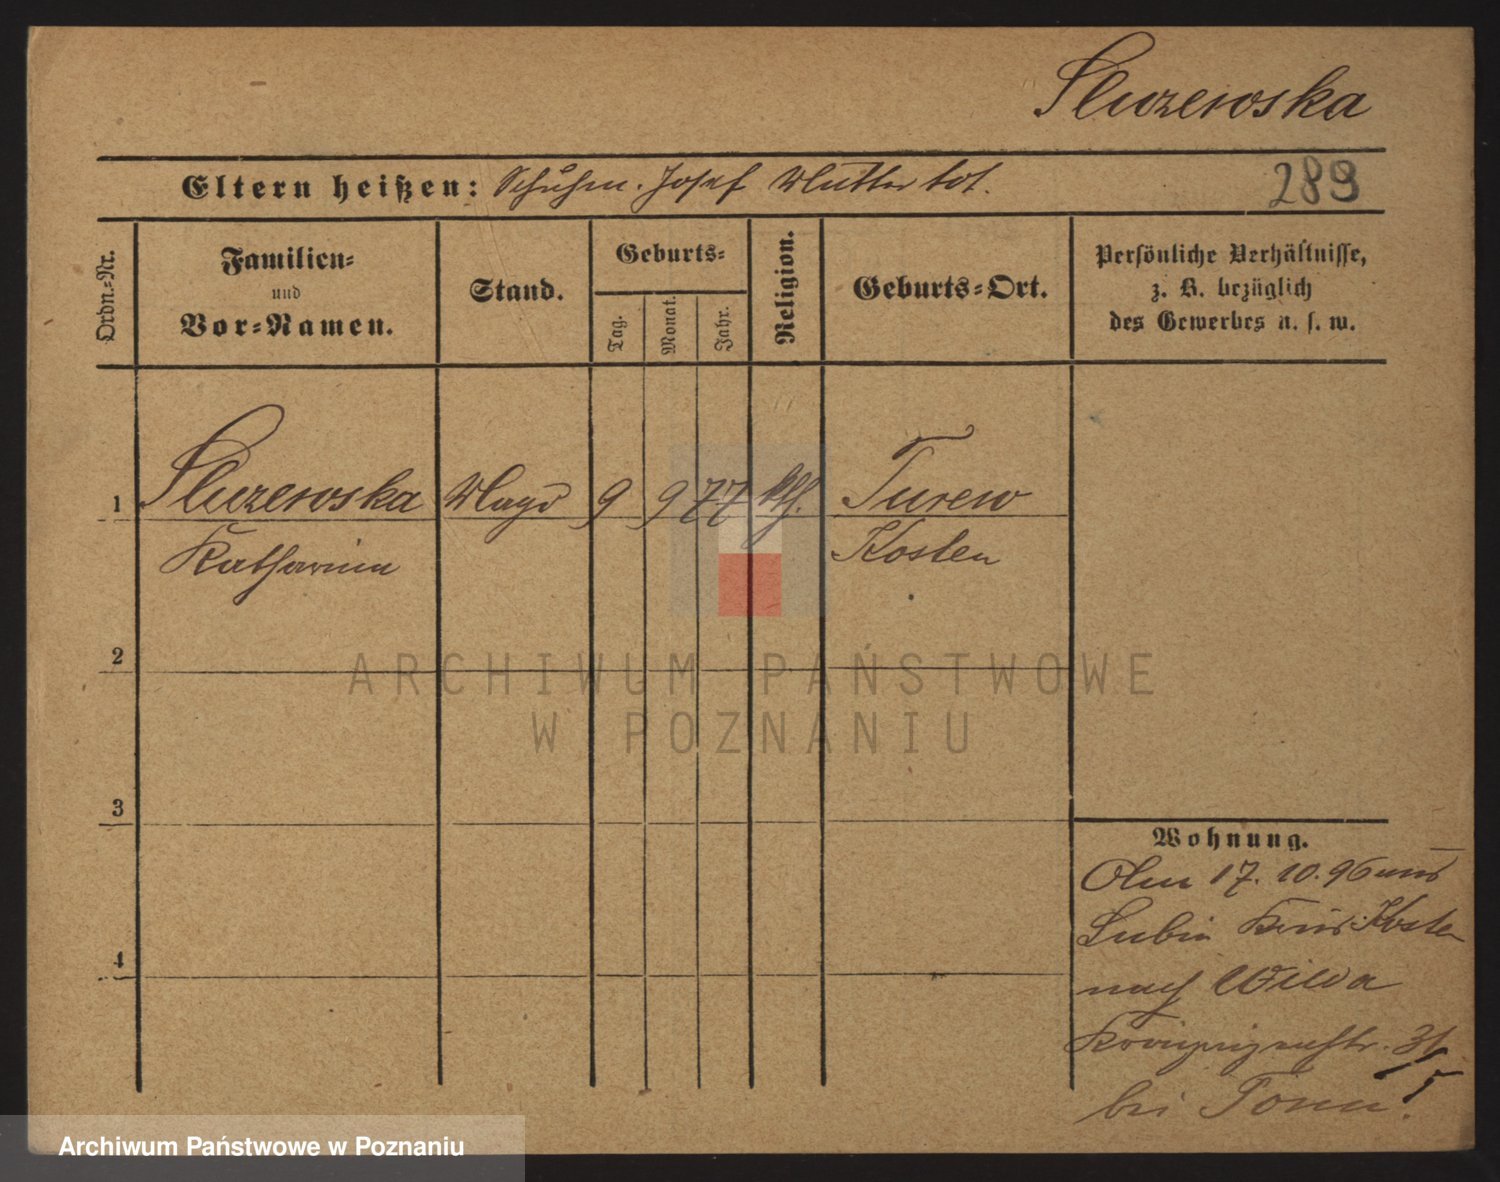 Sluzewska
Eltern heißen: Schuhm. Josef Mutter tot.
289
Ordn.-Nr.
Familien-
und
Vor-Namen.
Stand.
Geburts-
Tag.
Monat.
Jahr.
Religion.
Geburts-Ort.
Persönliche Verhältnisse,
z. B. bezüglich
des Gewerbes u. s. w.
1
Sluzewska Magd 9 9 77 kth. Turew
Katharina Kosten
2
ARCHIWUM PAŃSTWOWE
W POZNANIU
3
Wohnung.
Am 17. 10. 96 aus
Lubin Kreis Kosten
4
nach Wilda
Kronprinzenstr. 31
bei
Archiwum Państwowe w Poznaniu